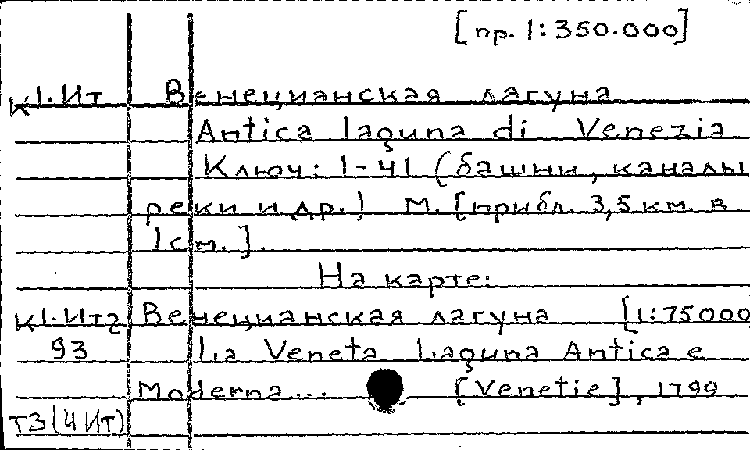 [пр. 1:350.000]
К1.Ит Венецианская лагуна
Antica laguna di Venezia
Ключ: 1-41 (башни, каналы
реки и др.) М. [прибл. 3,5 км. в
1см.].
На карте:
К1.Ит2 Венецианская лагуна [1:75000
93 La Veneta Laguna Antica e
Moderna... [Venetie], 1799
Т3(4Ит)